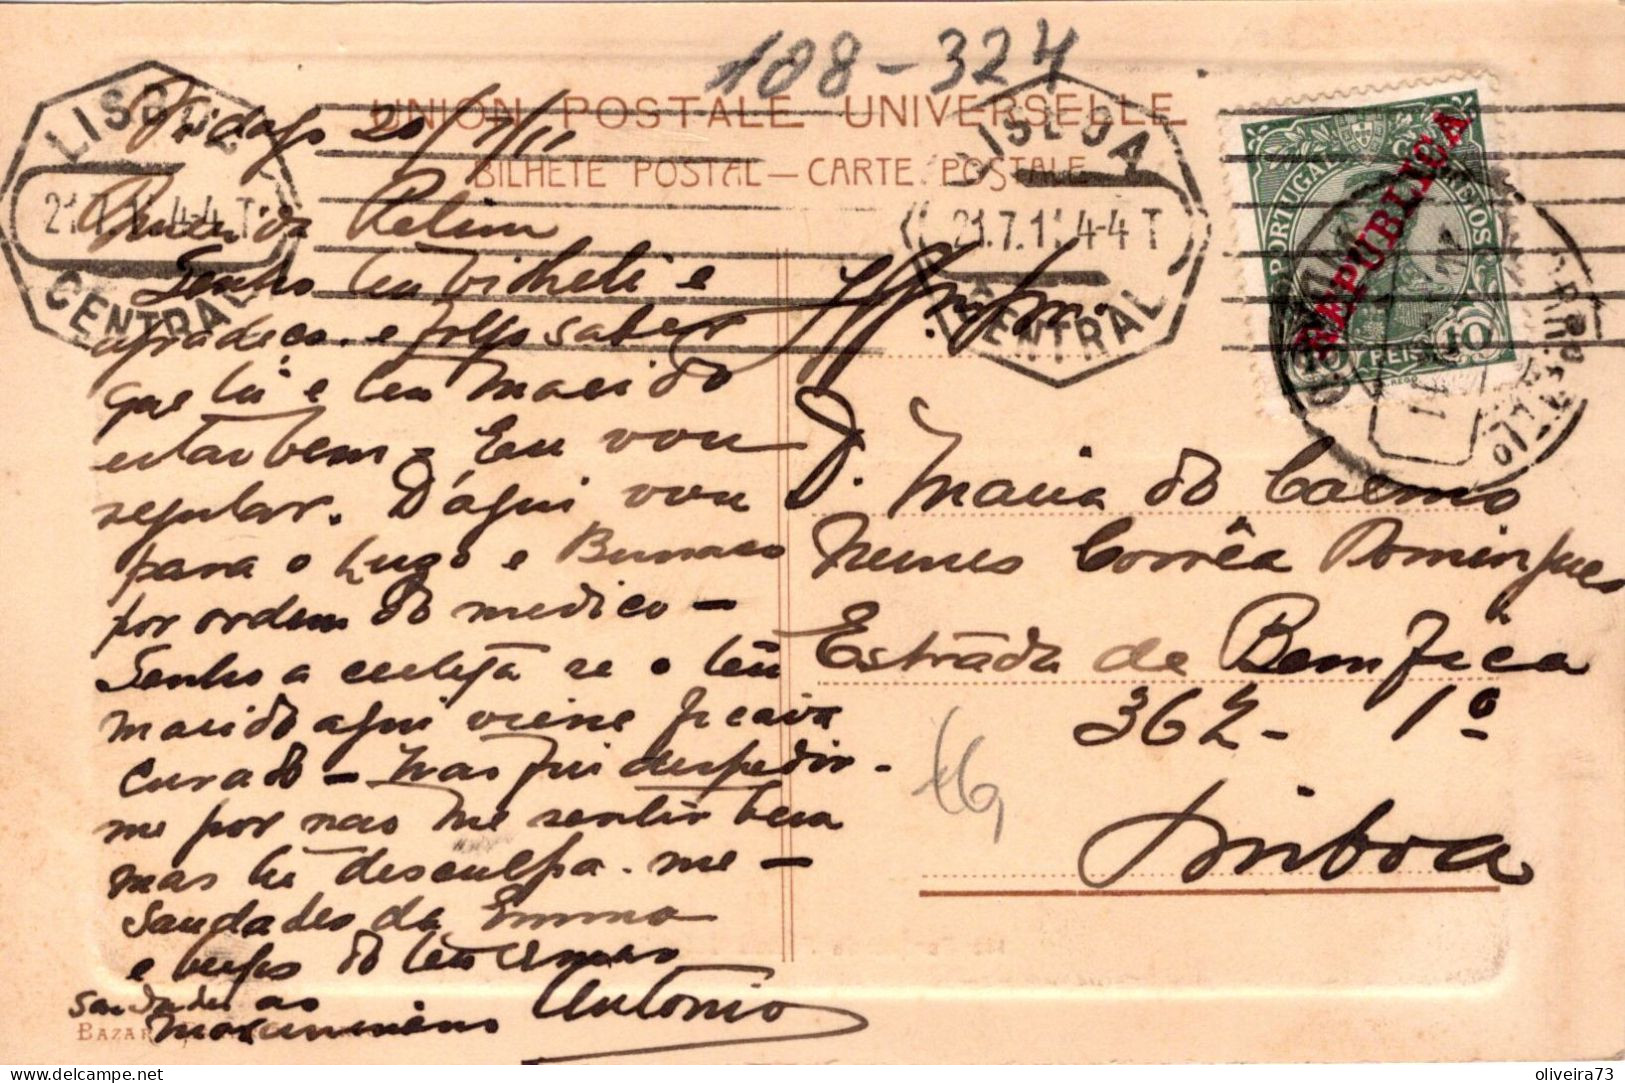 108-324
UNION POSTALE UNIVERSELLE
BILHETE POSTAL — CARTE POSTALE
LISBOA
21.7.11 4-4 T
CENTRAL
LISBOA
21.7.11 4-4 T
CENTRAL
PORTUGAL CORREIOS
REPUBLICA
10 REIS 10
Vidago 20/7/11
Querida
Tenho teu bilhete e
agradeço. e folgo saber
que tu e teu marido
estão bem - Eu vou
regular. D'aqui vou
para o Lugo e Bussaco
por ordem do medico -
Tenho a certeza se o teu
marido aqui viesse ficava
curado - Não fui despedir-
me por nao me sentir bem
mas tu desculpa-me -
Saudades da Emma
e beijos do teu irmão
Antonio
saudades ao
Maximiano
D. Maria do Carmo
Nunes Corrêa Domingues
Estrada de Bemfica
362 - 1º
Lisboa
BAZAR
oliveira73